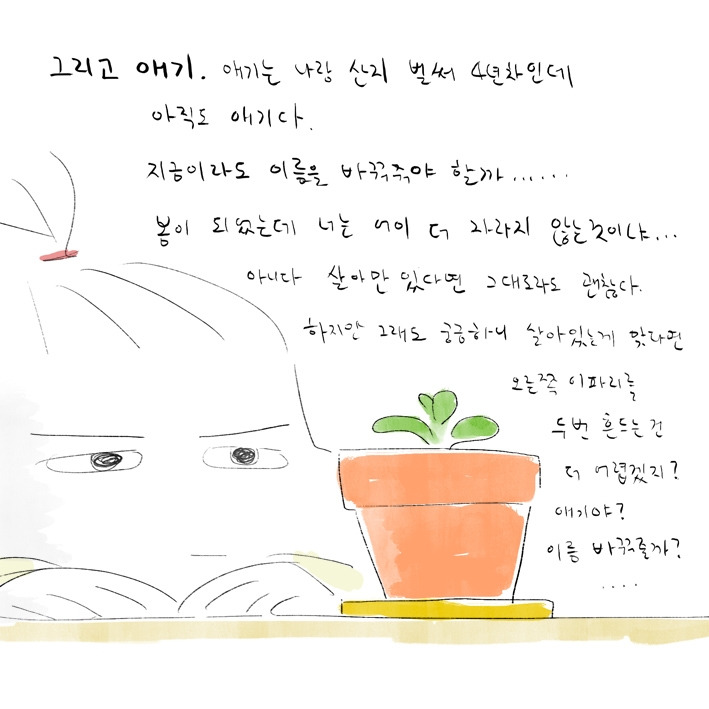 그리고 애기. 애기는 나랑 산지 벌써 4년차인데
아직도 애기다.
지금이라도 이름을 바꿔줘야 할까......
봄이 되었는데 너는 어이 더 자라지 않는것이냐...
아니다 살아만 있다면 그대로라도 괜찮다.
하지만 그래도 궁금하니 살아있는게 맞다면
오른쪽 이파리를
두번 흔드는건
더 어렵겠지?
애기야?
이름 바꿔줄까?
....